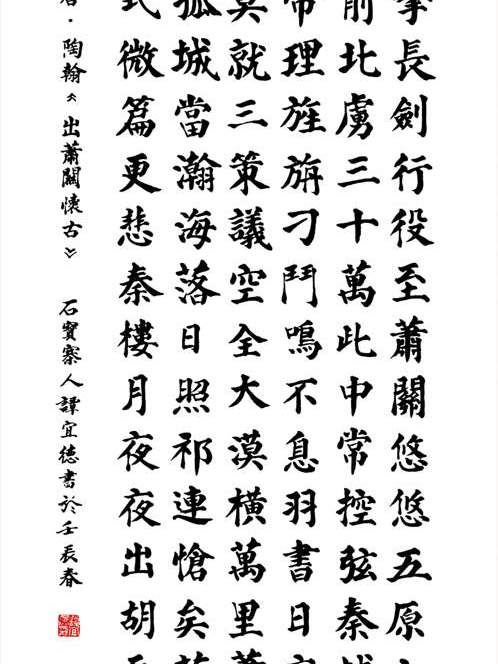 長劍行役至蕭關悠悠五原
前北虜三十萬此中常控弦秦城
帝理旌旃刁鬥鳴不息羽書日
莫就三策議空全大漠橫萬里蕭
孤城當瀚海落日照祁連愴矣
式微篇更悲秦樓月夜夜出胡
·陶翰《出蕭關懷古》 石寶寨人譚宜德書於壬辰春